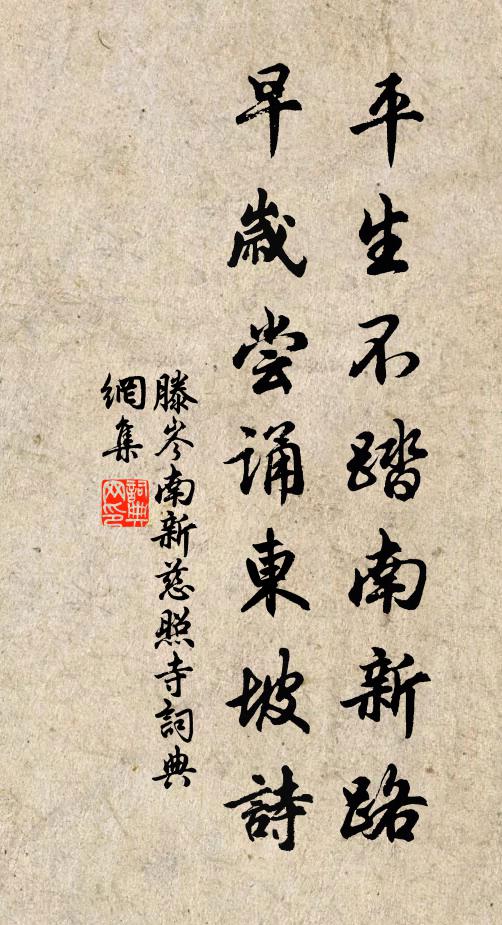 平生不踏南新路
早歲尝誦東坡詩
滕岑南新慈照寺詞典
網集
詞典
网印